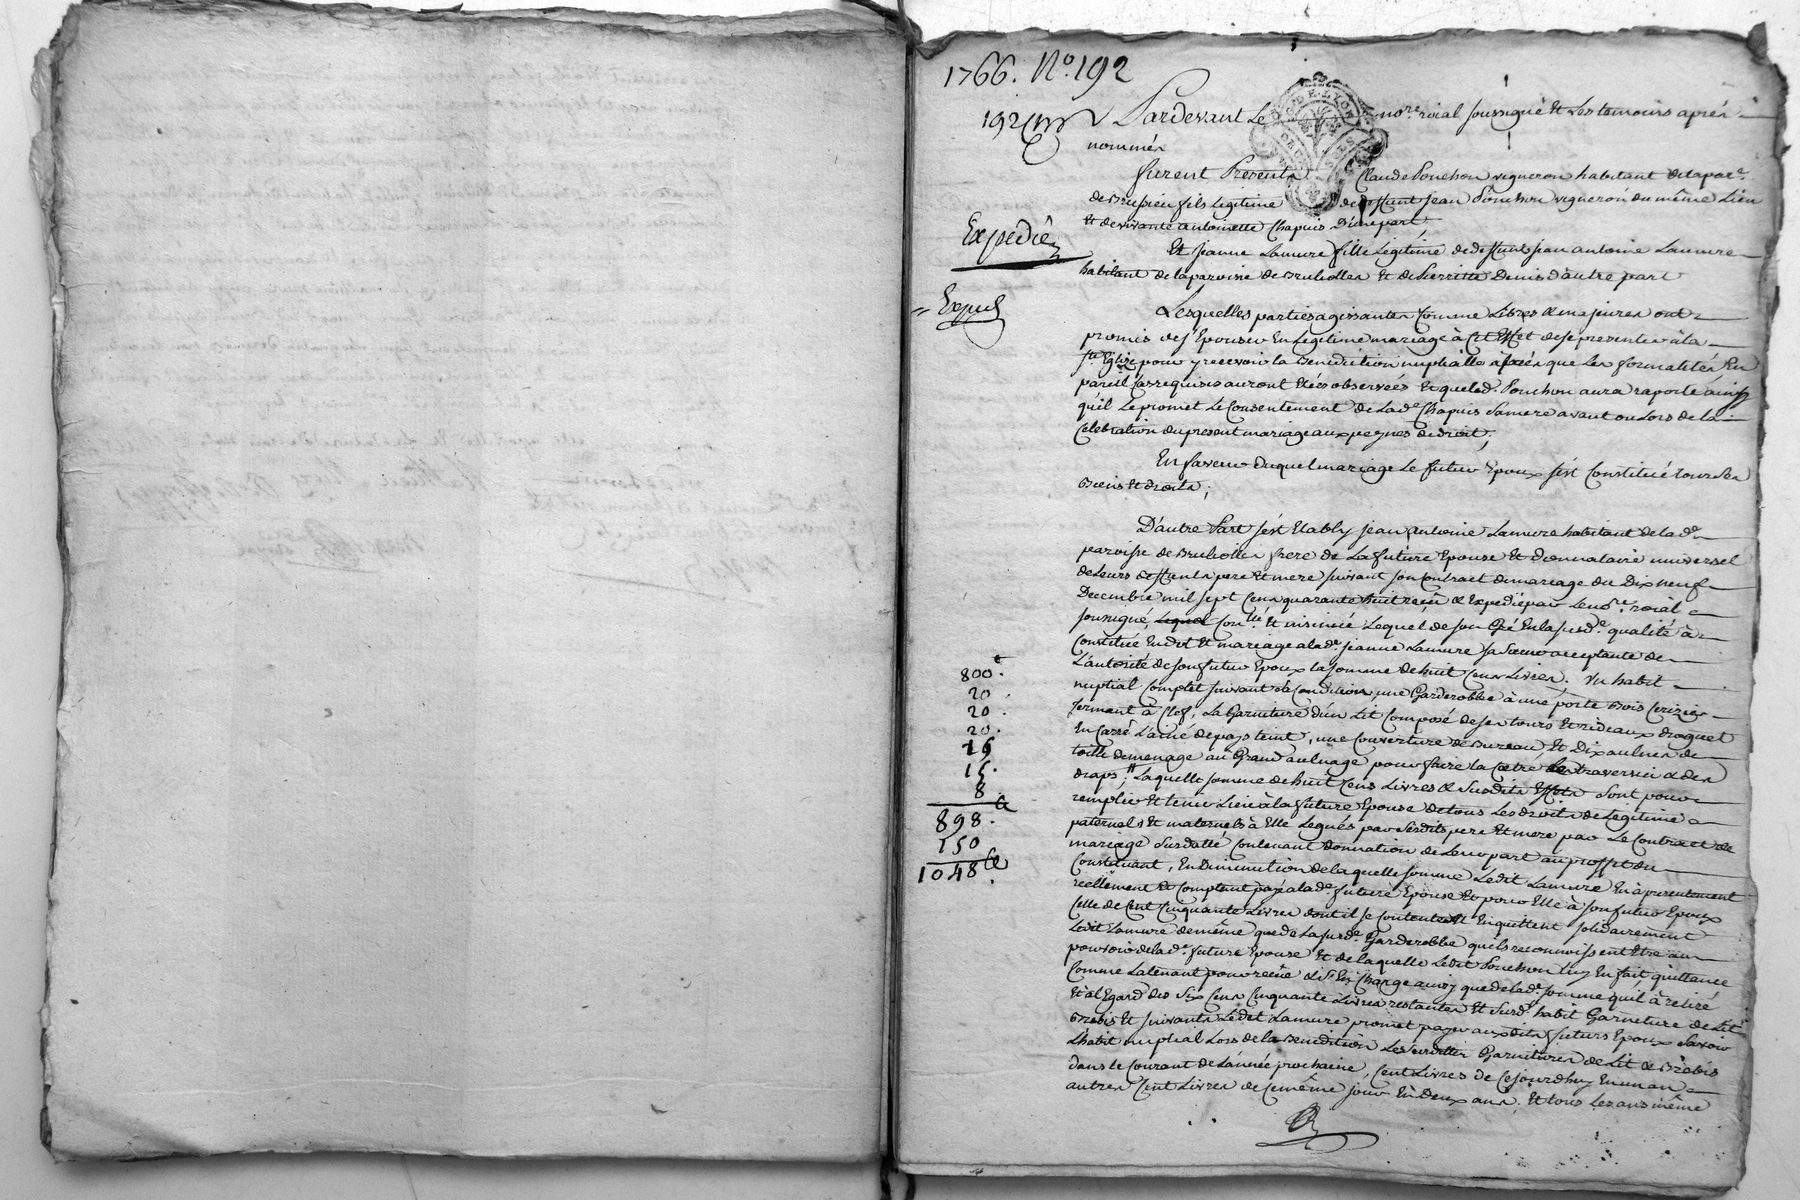 1766. No. 192
192
Pardevant Le nore. roial soussigné Et Les temoins après
nommés
furent Presents Claude Ponchon vigneron habitant de la parr.
de Brussieu fils Legitime de deffunt Jean Ponchon vigneron du même Lieu
Et de vivante antoinette Chapuis D'une part,
Expedié
Et Jeanne Lamure fille Legitime de deffunt Jean antoine Lamure
habitant de la paroisse de Brulliolles Et de Pierrette Denis d'autre part
Lesquelles parties agissantes Comme Libres & majeures ont
promis de s'Epouser En Legitime mariage à Cet Effet de se presenter à la
ste Eglise pour y recevoir la Benediction nuptialle après que Les formalités En
pareil Cas requises auront Etées observées Et que led. Ponchon aura raporté ainsy
qu'il Le promet Le Consentement de Lade. Chapuis Sa mere avant ou Lors de la
Celebration du present mariage aux peynes de droit;
En faveur duquel mariage Le futur Epoux s'est Constitué tous Ses
Biens Et droits;
D'autre Part s'est Etably Jean antoine Lamure habitant de lade.
paroisse de Brulliolles frere de La future Epouse Et donnataire universel
de Leurs deffunts pere Et mere suivant son Contract de mariage du Dix neuf
Decembre mil sept Cens quarante huit reçu & Expedié par Le nore. roial
soussigné, Et insinué Lequel de son gré En la susde. qualité à
Constitué En dot Et mariage a lade. Jeanne Lamure sa Sœur acceptante de
L'autorité de son futur Epoux la somme de huit Cens Livres. Un habit
nuptial Complet suivant sa Condition, une Garderobbe à une porte Bois Cerizier
fermant à Clef, La Garniture d'un Lit Composé de ses tours Et rideaux droguet
En Carré Lainé de pays teint, une Couverture de Bureau Et Dix aulnes de
toille de menage au Grand aulnage pour faire la Coetre Le traversier & des
draps; Laquelle somme de huit Cens Livres & Susdits Effets Sont pour
remplir Et tenir Lieu à la future Epouse de tous Les droits de Legitime
paternels Et maternels à Elle Legués par Sesdits pere Et mere par Le Contract de
mariage Susdatté Contenant donnation de Leur part au proffit du
Constituant, En Diminution de laquelle somme Ledit Lamure En à presentement
réellement Et Comptant payé a lade. future Epouse Et pour Elle à son futur Epoux
Celle de Cent Cinquante Livres dont il se Contentent Et En quittent solidairement
Ledit Lamure de même que de La susde. Garderobbe qu'ils reconnoissent Etre au
pouvoir de lade. future Epouse Et de laquelle Ledit Ponchon Luy En fait quittance
Comme La tenant pour reçue & s'En Charge ainsy que de lade. somme qu'il à retiré
Et à l'Egard des Six Cens Cinquante Livres restantes Et Susd. habit Garniture de Lit
Brebis Et suivants Ledit Lamure promet payer aux dits futurs Epoux Savoir
L'habit nuptial Lors de la Benediction Les susdittes Garnitures de Lit & Brebis
dans le Courant de L'année prochaine, Cent Livres de Cejourdhuy En un an
autres Cent Livres de Ce même jour En Deux ans; Et tous Les ans même
800.
20.
20.
20.
15
15.
8.
898.
150
1048